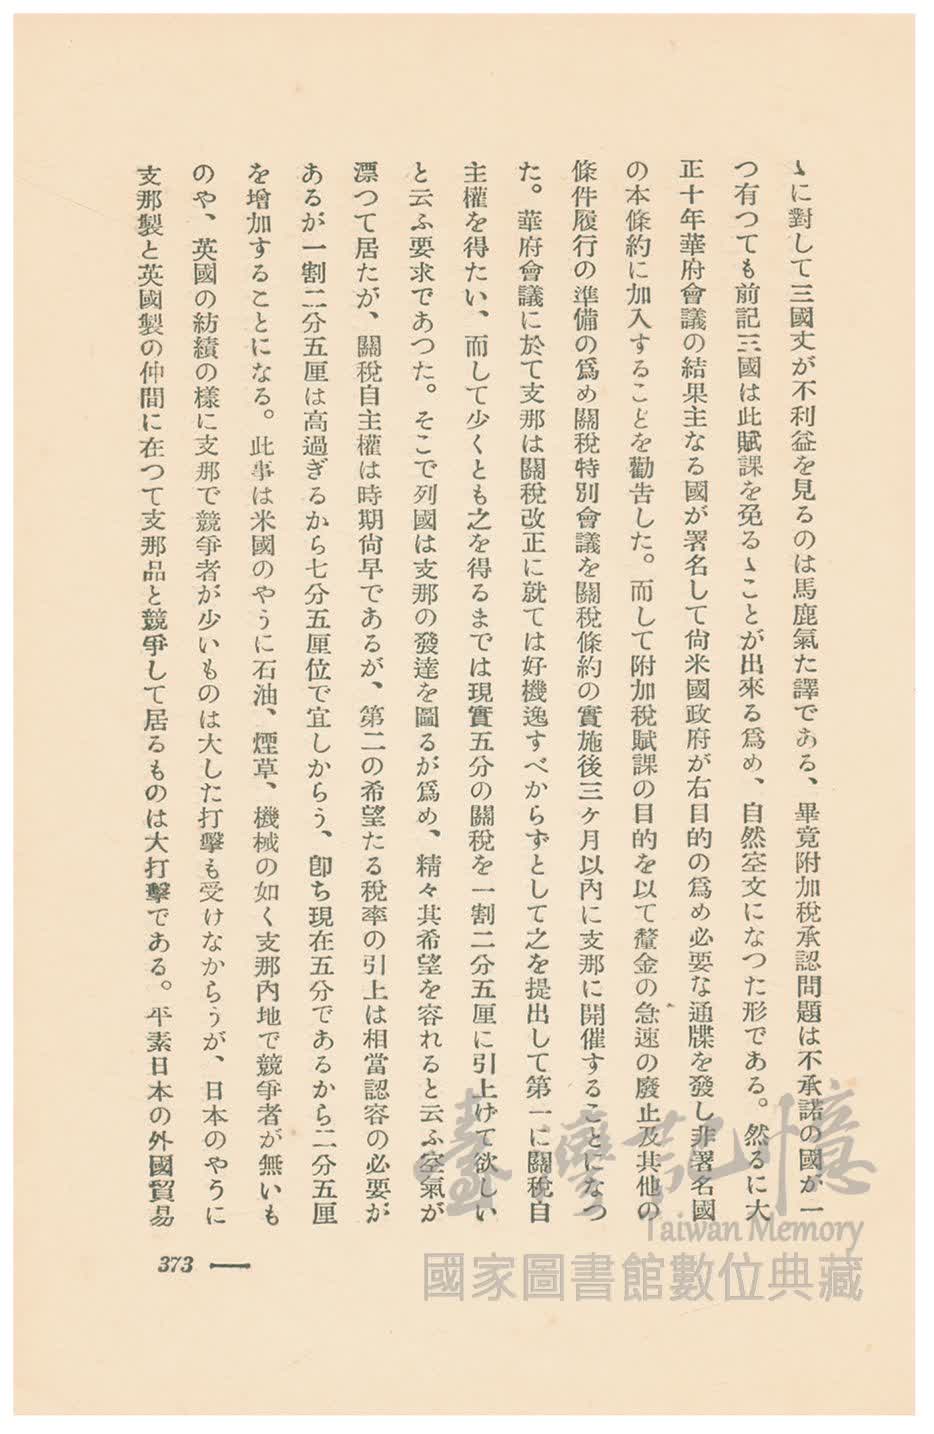 ゝに對して三國丈が不利益を見るのは馬鹿氣た譯である、畢竟附加稅承認問題は不承諾の國が一
つ有つても前記三國は此賦課を免るゝことが出來る爲め、自然空文になつた形である。然るに大
正十年華府會議の結果主なる國が署名して尙米國政府が右目的の爲め必要な通牒を發し非署名國
の本條約に加入することを勸告した。而して附加稅賦課の目的を以て釐金の急速の廢止及其他の
條件履行の準備の爲め關稅特別會議を關稅條約の實施後三ケ月以內に支那に開催することになつ
た。華府會議に於て支那は關稅改正に就ては好機逸すべからずとして之を提出して第一に關稅自
主權を得たい、而して少くとも之を得るまでは現實五分の關稅を一割二分五厘に引上げて欲しい
と云ふ要求であつた。そこで列國は支那の發達を圖るが爲め、精々其希望を容れると云ふ空氣が
漂つて居たが、關稅自主權は時期尙早であるが、第二の希望たる稅率の引上は相當認容の必要が
あるが一割二分五厘は高過ぎるから七分五厘位で宜しからう、卽ち現在五分であるから二分五厘
を增加することになる。此事は米國のやうに石油、煙草、機械の如く支那內地で競爭者が無いも
のや、英國の紡績の樣に支那で競爭者が少いものは大した打擊も受けなからうが、日本のやうに
支那製と英國製の仲間に在つて支那品と競爭して居るものは大打擊である。平素日本の外國貿易
373
臺灣記憶
Taiwan Memory
國家圖書館數位典藏